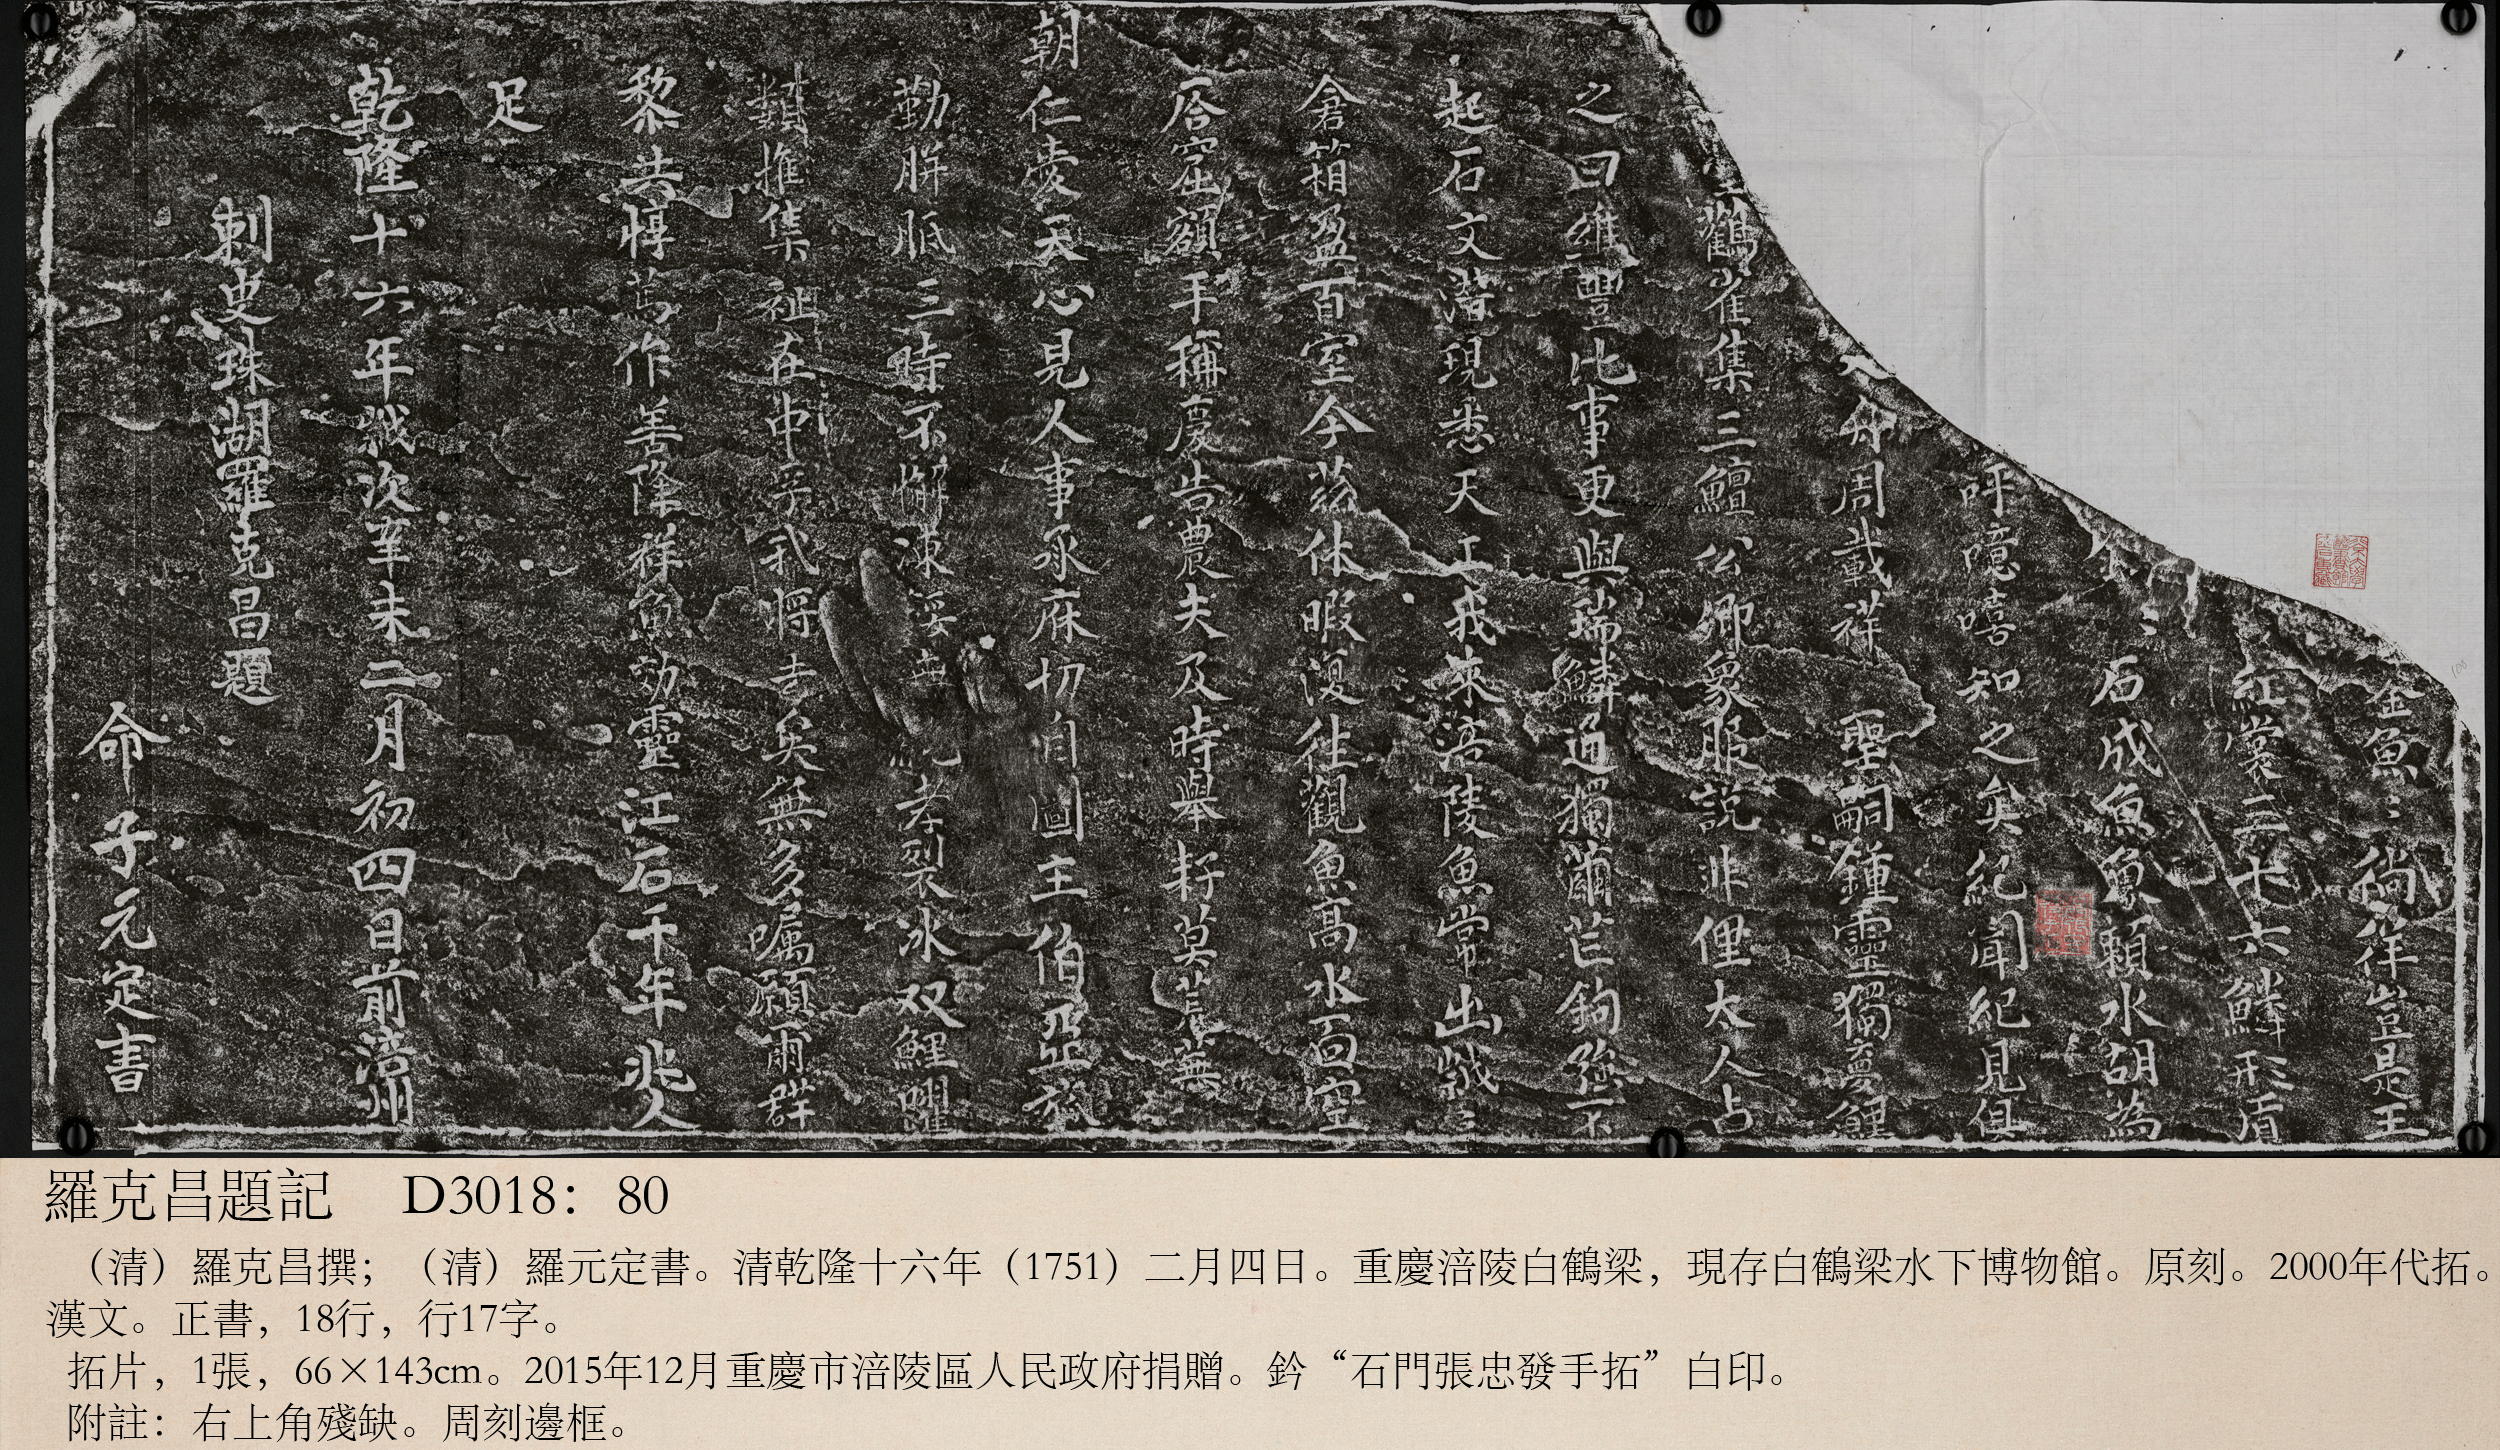 金魚〻徜徉豈是王
紅裳三十六鱗形質
石成魚魚賴水胡為
呼噫嘻知之矣紀聞紀見俱
舟周載祥 聖嗣鍾靈獨夢鯉
鸛雀集三鱣公卿象服説非俚太人占
之曰維豐比事更與瑞鱗通獨蘭茫鉤強不
起石文潛現悉天工我來涪陵魚常出歲〻
倉箱盈百室今茲休暇復往觀魚高水面空
啓窟額手稱慶告農夫及時舉耔莫荒蕪
朝仁壹天心見人事承庥切自圖主伯亞旅
勤胼胝三時不懈凍餒無 孝裂冰双鯉躍
類推集祉在中孚我將去矣無多囑願爾群
黎共惇篤作善降祥魚効靈江石千年兆人
足
乾隆十六年歲次辛未二月初四日前涪州
刺史珠湖羅克昌題
命子元定書
石門張忠發手拓
羅克昌題記 D3018：80
（清）羅克昌撰；（清）羅元定書。清乾隆十六年（1751）二月四日。重慶涪陵白鶴梁，現存白鶴梁水下博物館。原刻。2000年代拓。
漢文。正書，18行，行17字。
拓片，1張，66×143cm。2015年12月重慶市涪陵區人民政府捐贈。鈐“石門張忠發手拓”白印。
附註：右上角殘缺。周刻邊框。